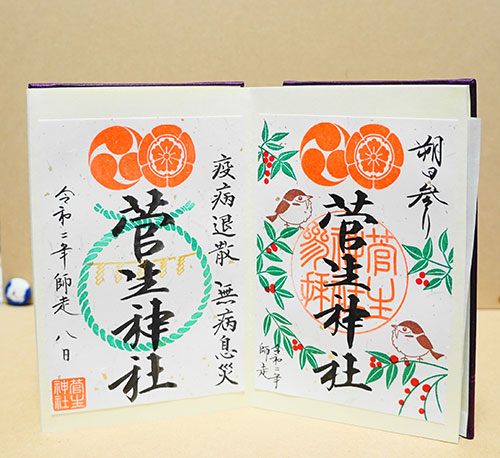 朔日参り
菅生神社
令和二年
師走
疫病退散 無病息災
菅生神社
令和二年師走 八日
菅生
神社